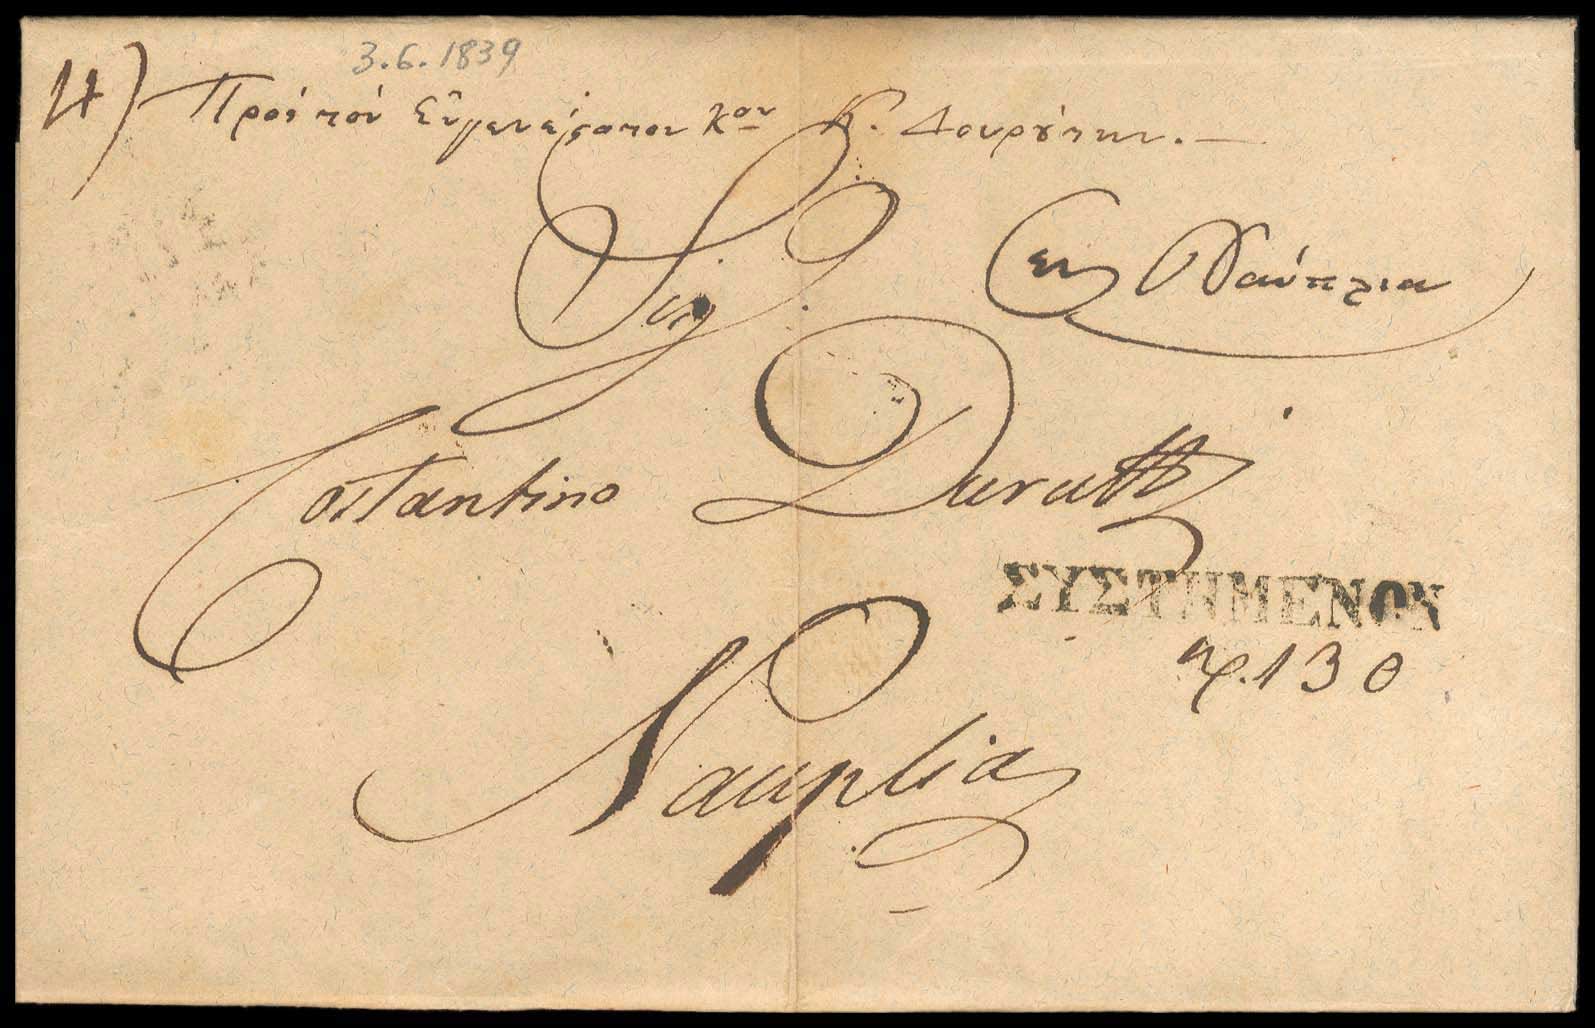 3.6.1839
Πρὸς τὸν Εὐγενέςατον Κον Κ. Δουρούτην.—
Sig
εν Ναύπλια
Costantino Durutti
ΣΥΣΤΗΜΕΝΟΝ
αρ. 130
Nauplia